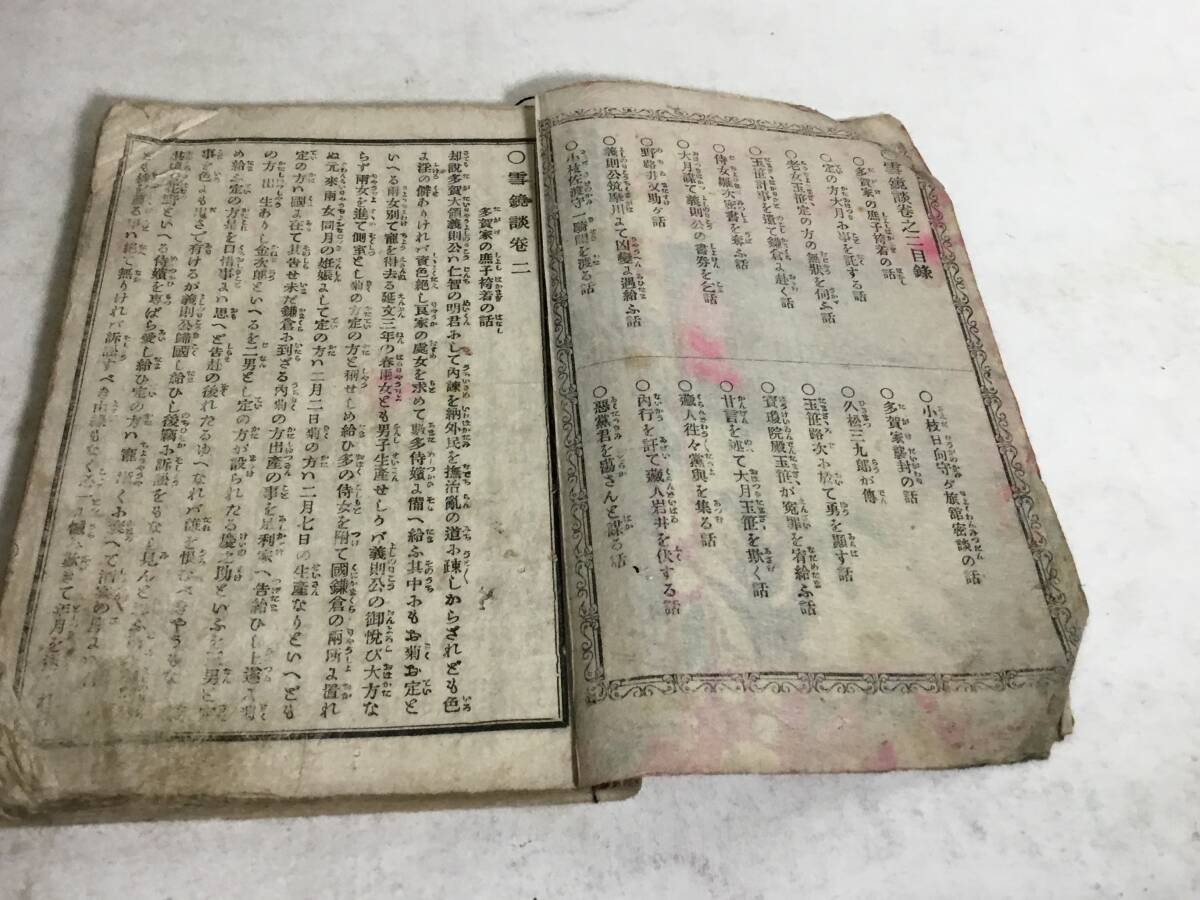 ○雪鏡談卷之二目錄
○多賀家の庶子袴着の話
○定の方大月お事を託する話
○老女玉笹定の方の無狀を伺ふ話
○玉笹計事を遺て鎌倉よ赴く話
○侍女嬪次密書を奪ふ話
○大月謀て義則公の書劵を乞話
○野路井又助ヶ話
○義則公筑摩川よて凶變よ遇給ふ話
○小枝佐渡守一騎闘を渡る話
○小枝日向守ヶ旅館密談の話
○多賀家諡封の話
○久松三九郎が傳
○玉笹路次お於て勇を顯す話
○寳瓊院殿玉笹が寃罪を宥給ふ話
○甘言を述て大月玉笹を欺く話
○藏人往々黨與を集る話
○內行を訐て藏人岩井を伏する話
○惡黨君を蕩さんと謀る話
○雪鏡談卷二
多賀家の庶子袴着の話
却說多賀大領義則公ハ仁智の明君おして內諫を納外民を撫治亂の道お疎しからざれども色
よ淫の僻ありけれバ資色絕し良家の處女を求めて數多侍嬪よ備へ給ふ其中おもお菊お定と
いへる兩女別て寵を得去る延文三年の春兩女とも男子生產せしうバ義則公の御悅び大方な
らず兩女を進て側室とし菊の方定の方と稱せしめ給ひ多の侍女を附て國鎌倉の兩所よ置れ
ぬ元來兩女同月の姙娠よして定の方ハ二月二日菊の方ハ二月七日の生產なりといへども
定の方ハ國よ在て其告せ未だ鎌倉お到ざる內菊の方出產の事を足利家へ告給ひし上遂よ菊
の方出生ありし金次郎といへるを二男とし定の方が設られたる慶之助といふを三男と定
め給ふ定の方是を口惜事よハ思へど告赴の後れたるゆへなれバ誰を恨むべきやうもな
事よ色よも出さで有けるが義則公歸國し給ひし後竊お訴訟をもなし見んと
といへる侍嬪を專ばら愛し給ひ定の方ハ寵